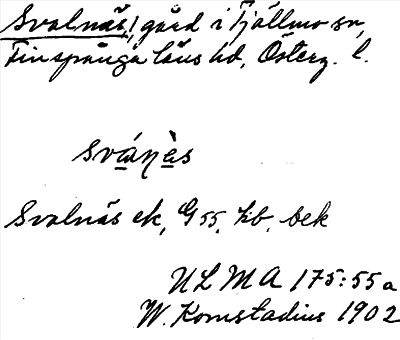 Svalnäs, gård i Tjällmo sn,
Finspånga läns hd, Österg. l.
svánàs
Svalnäs ek, G 55, hb, bek
ULMA 175:55a
W. Komstadius 1902